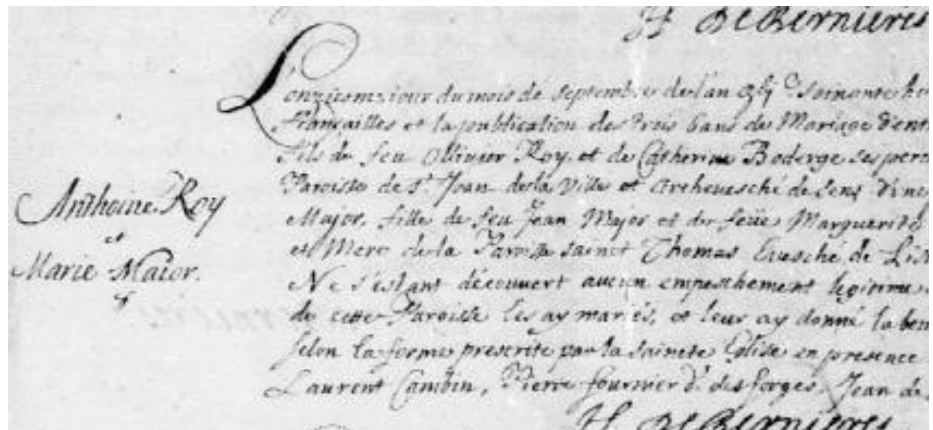 H. DeBernieres
L'onziesme jour du mois de septembre de l'an soixante hui
Fiançailles et la publication des trois bans de Mariage d'entr
Fils de feu Ollivier Roy, et de Catherine Boderge ses pere
Paroisse de St. Jean de la ville et Archevesché de Sens d'une
Major, fille de feu Jean Major et de feüe Marguerite
et Mere de la Paroisse sainct Thomas Evesché de Lis
Ne s'estant découvert aucun empeschement legitime
de cette Paroisse les ay mariés, et leur ay donné la ben
selon la forme prescrite par la saincte Eglise en presence
Laurent Cambin, Pierre fournier Sr. des forges, Jean de
H. DeBernieres
Anthoine Roy
et
Marie Maior.